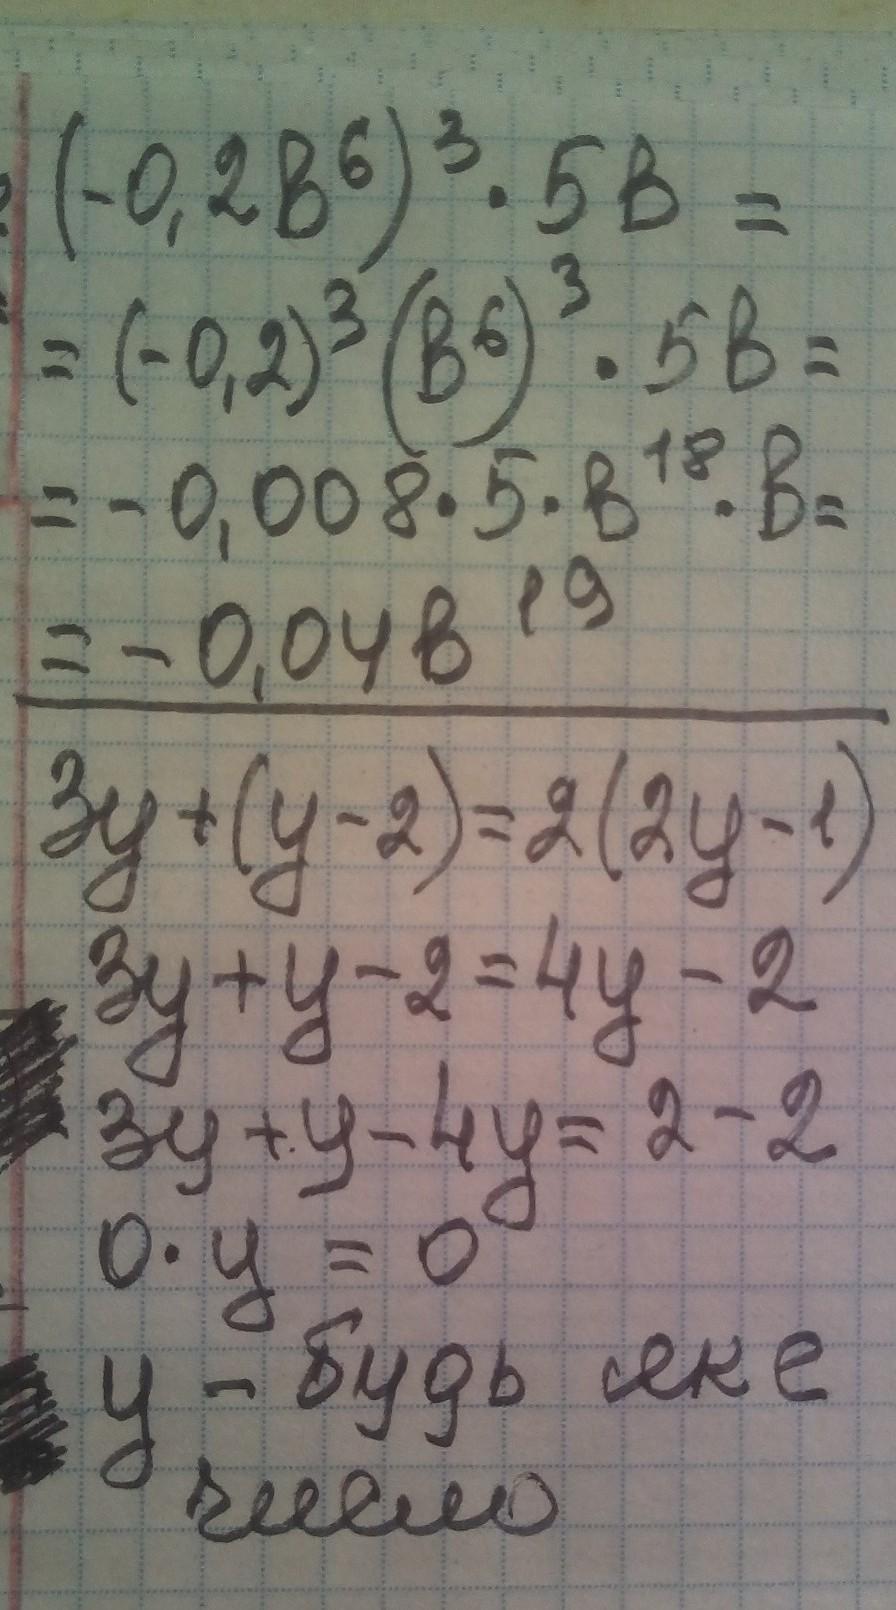 (-0,2в⁶)³ · 5в =
= (-0,2)³ (в⁶)³ · 5в =
= -0,008 · 5 · в¹⁸ · в =
= -0,04в¹⁹
3у + (у - 2) = 2(2у - 1)
3у + у - 2 = 4у - 2
3у + у - 4у = 2 - 2
0 · у = 0
у - будь яке
число